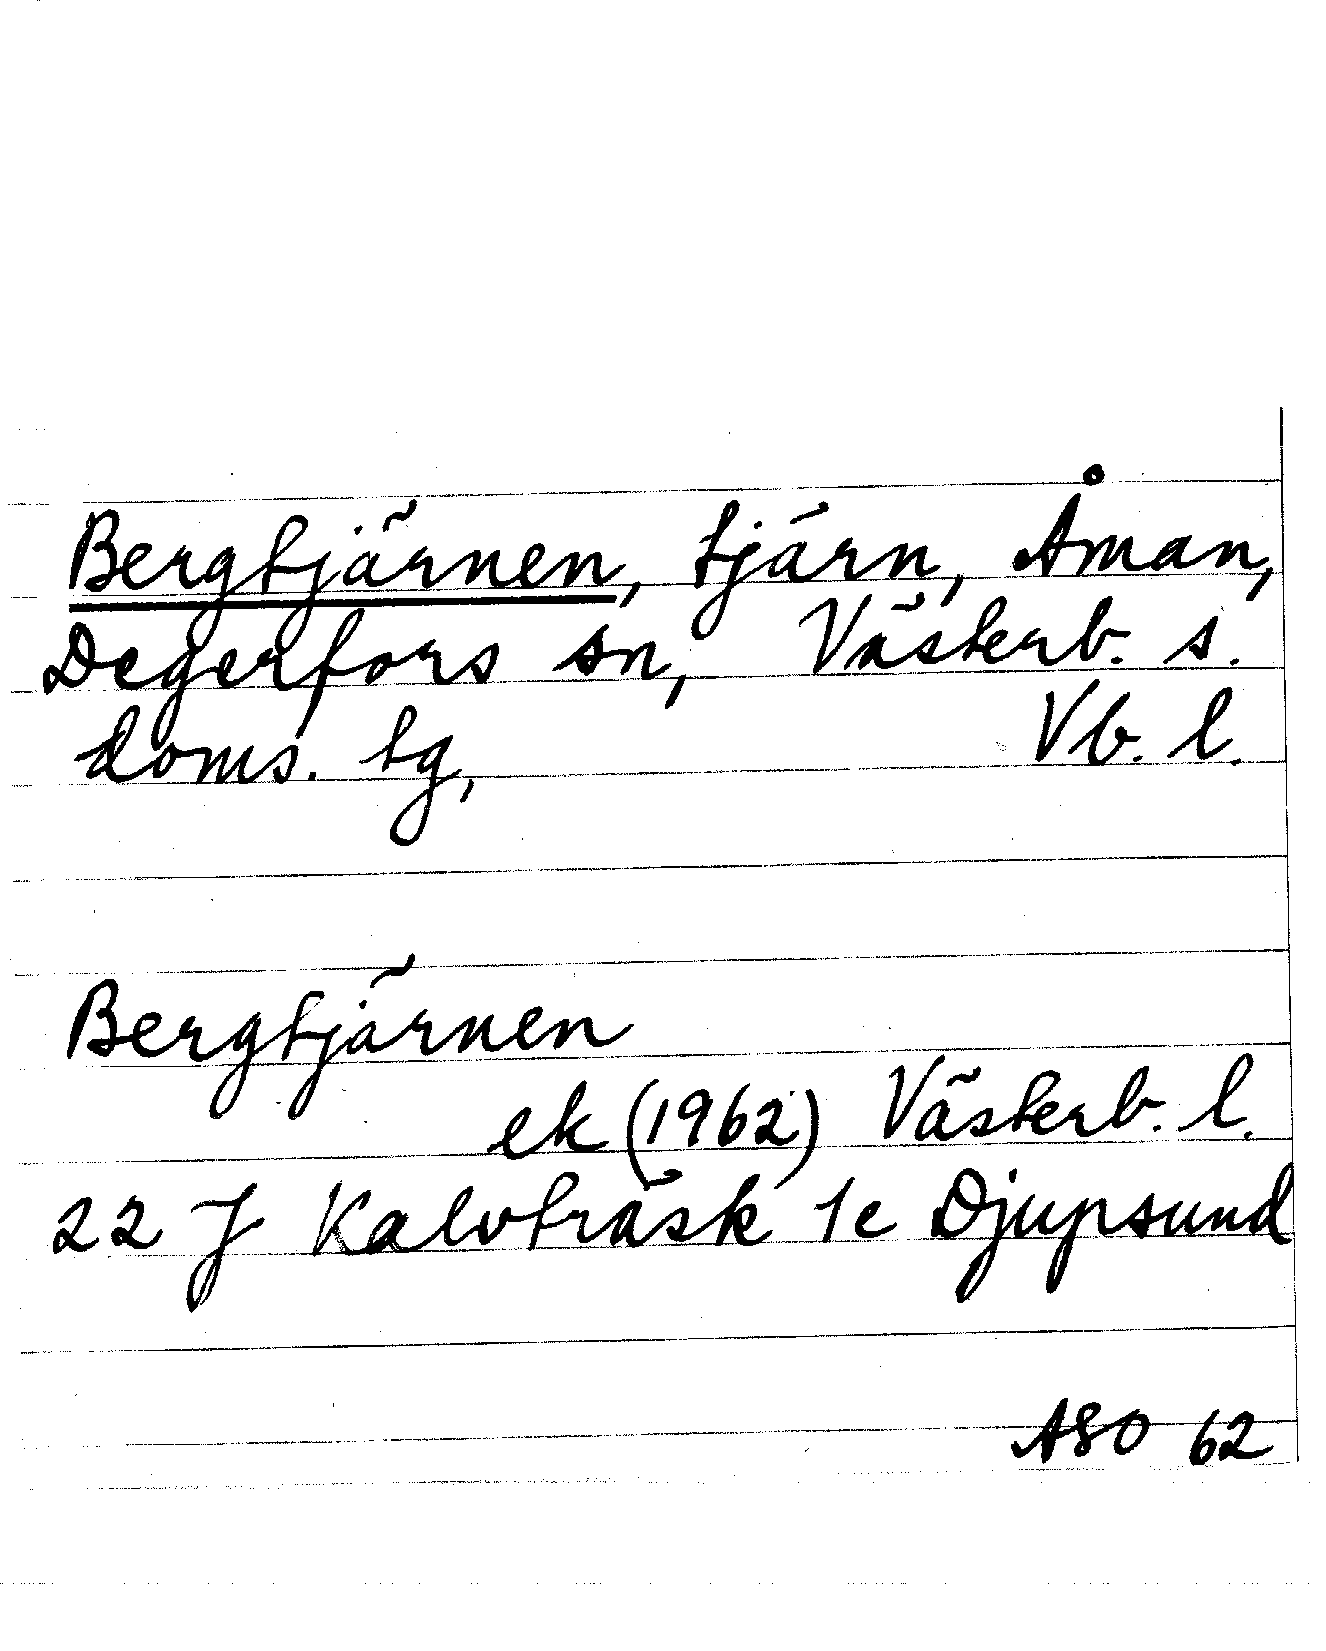 Bergtjärnen, tjärn, Åman,
Degerfors sn, Västerb. s.
doms. tg, Vb. l.
Bergtjärnen
ek (1962) Västerb. l.
22 J Kalvträsk 1e Djupsund
ASO 62